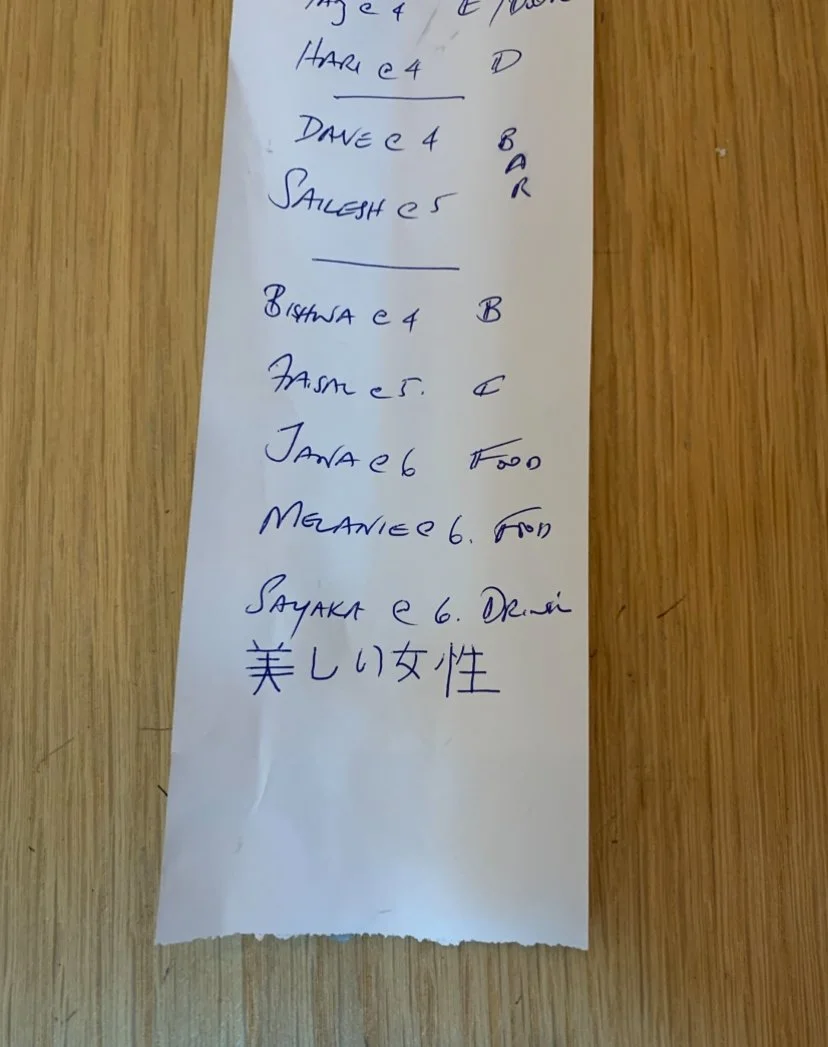 @ 4
HARI @ 4 D
DAVE @ 4 BAR
SAILESH @ 5
BISHWA @ 4 B
FAISAL @ 5. C
JANA @ 6 FOOD
MELANIE @ 6. FOOD
SAYAKA @ 6.
美しい女性